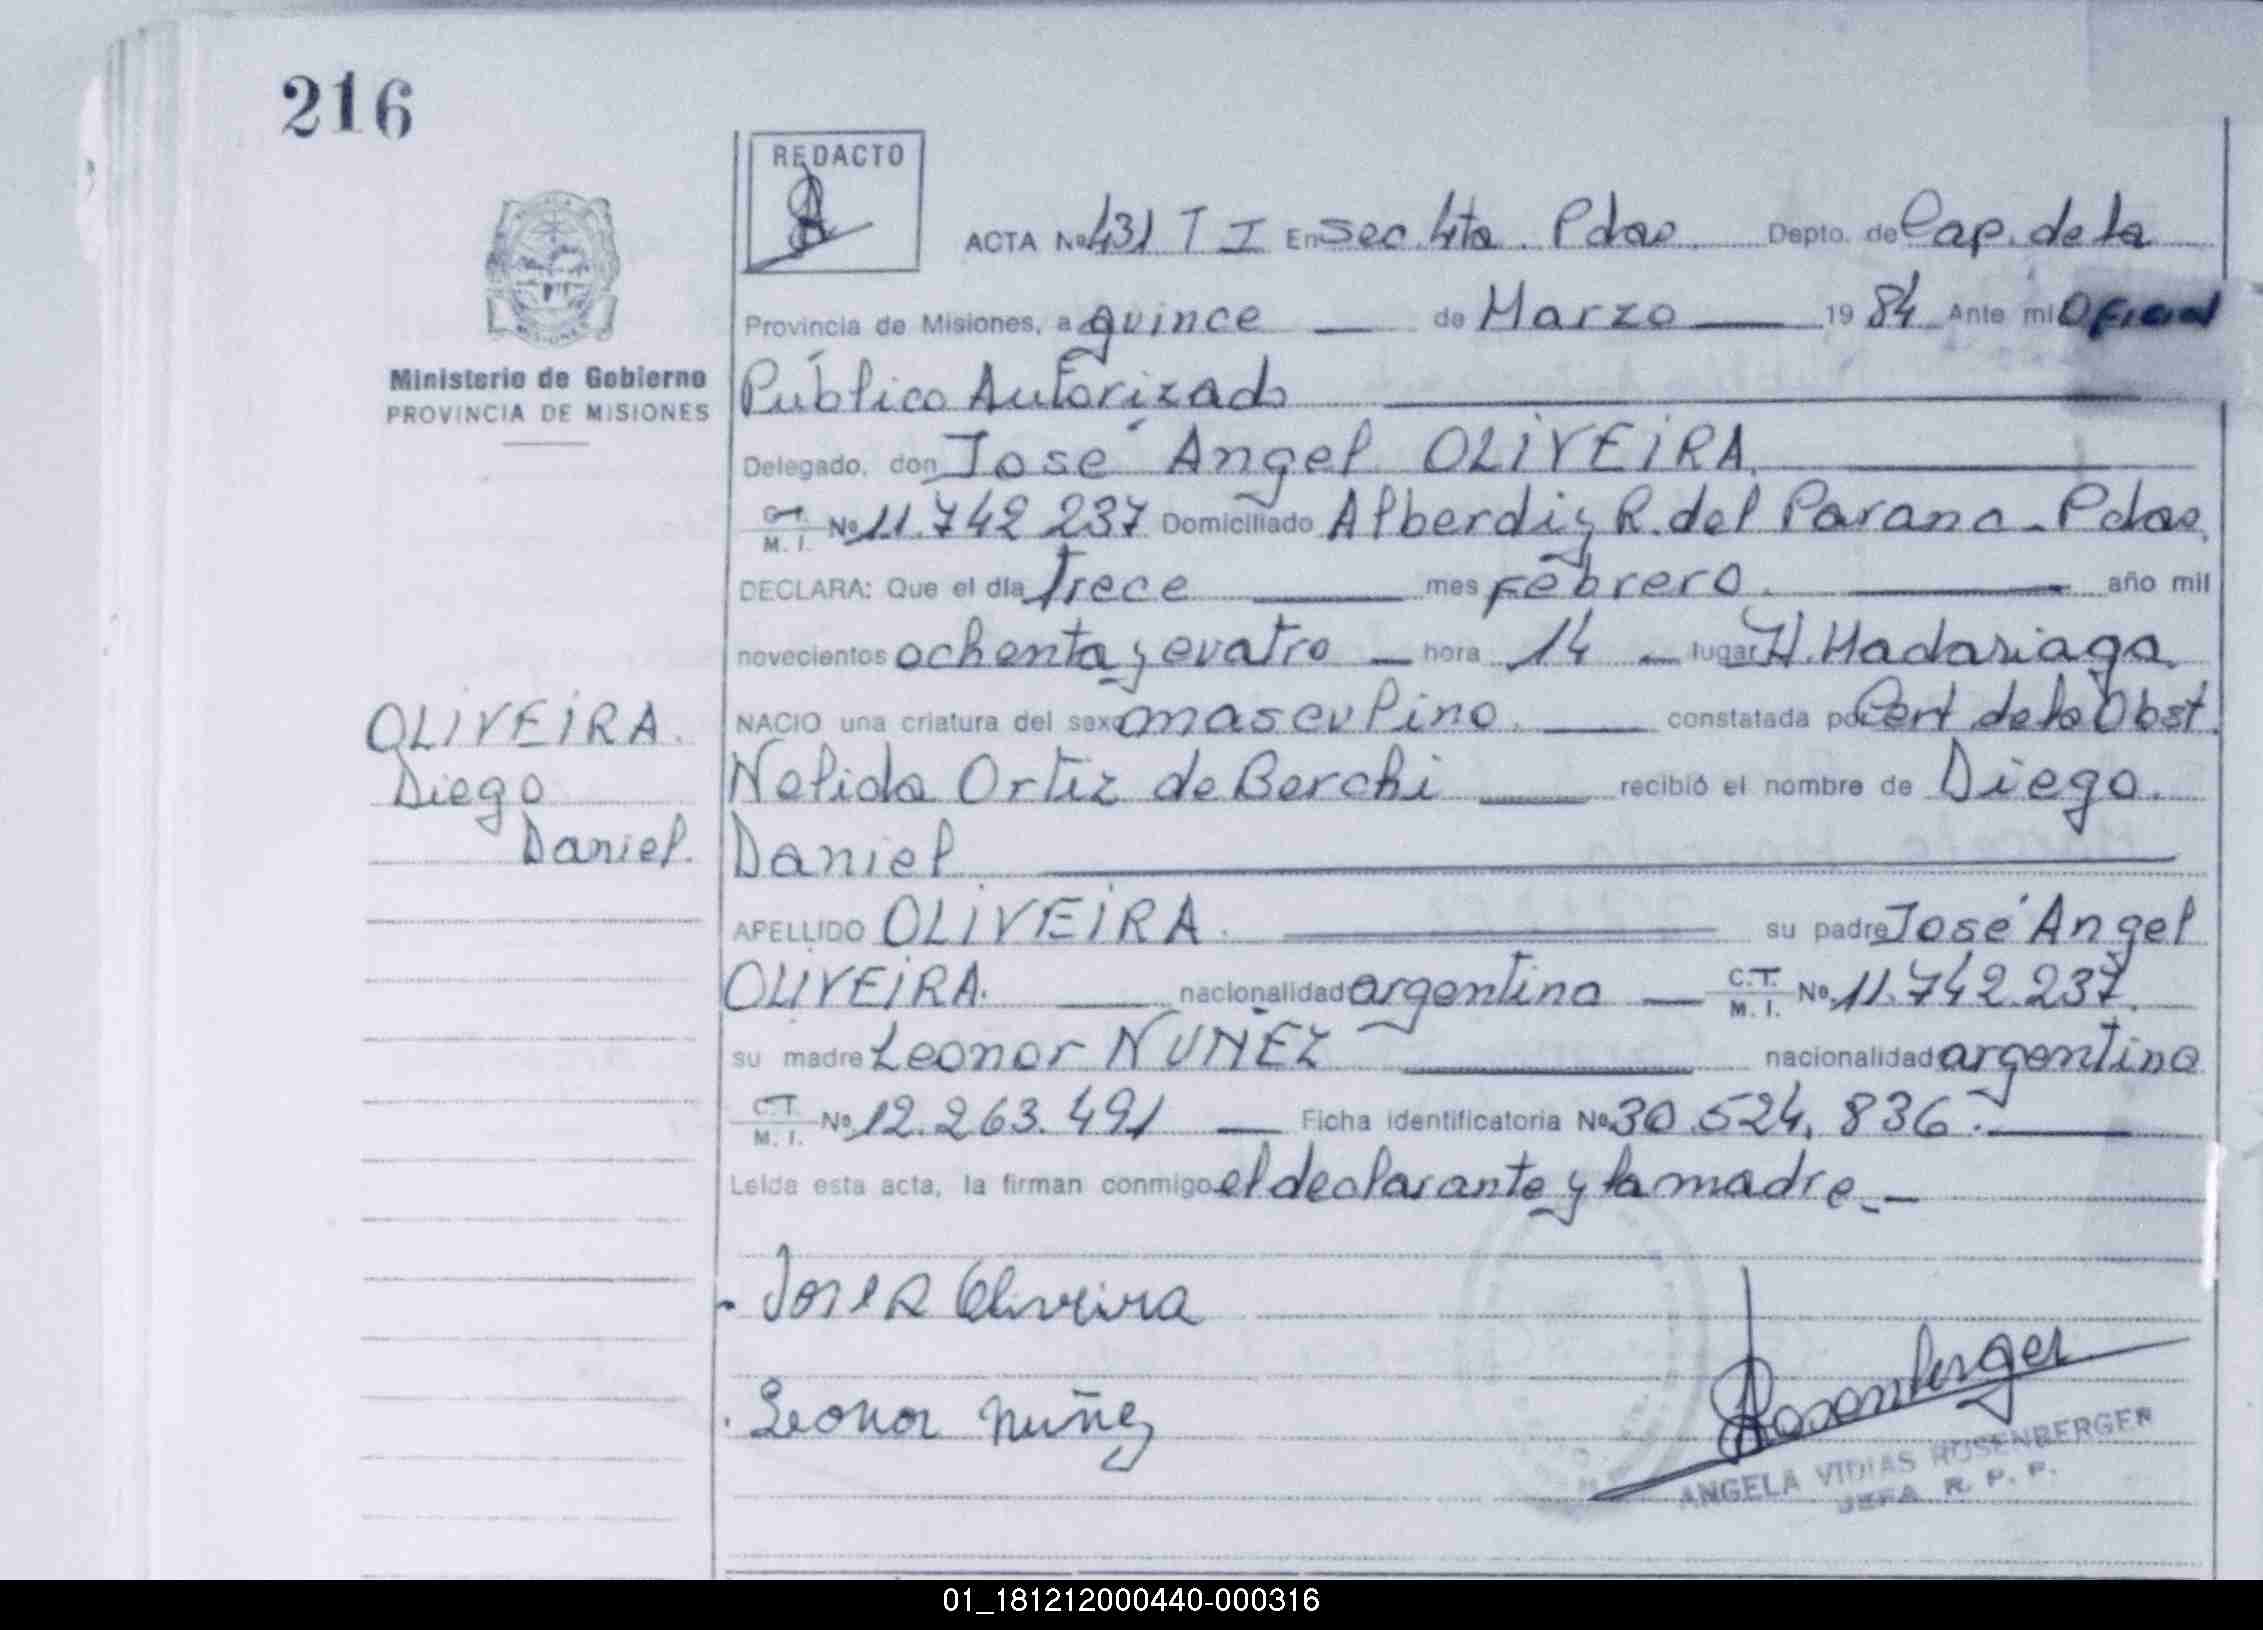 216
REDACTO
ACTA Nº 431 T I En Sec. 4ta. Pdas. Depto. de Cap. de la
Provincia de Misiones, a quince de Marzo 1984 Ante mi Oficial
Ministerio de Gobierno
PROVINCIA DE MISIONES
Público Autorizado
Delegado, don José Angel OLIVEIRA.
C.T. M.I. Nº 11.742 237 Domiciliado Alberdi y R. del Parana - Pdas.
DECLARA: Que el día Trece mes Febrero. año mil
novecientos ochenta y cuatro hora 14 lugar H. Madariaga.
OLIVEIRA.
NACIO una criatura del sexo masculino. constatada por Cert de la Obst.
Diego
Nelida Ortiz de Berchi recibió el nombre de Diego.
Daniel.
Daniel
APELLIDO OLIVEIRA. su padre José Angel
OLIVEIRA. nacionalidad argentina C.T. M.I. Nº 11.742.237.
su madre Leonor NUÑEZ nacionalidad argentina
C.T. M.I. Nº 12.263.491 Ficha identificatoria Nº 30.524.836.
Leída esta acta, la firman conmigo el declarante y la madre.-
Jose A Oliveira
Rosenberger
Leonor Nuñez
ANGELA VIDIAS ROSENBERGER
JEFA R. P. P.
01_181212000440-000316